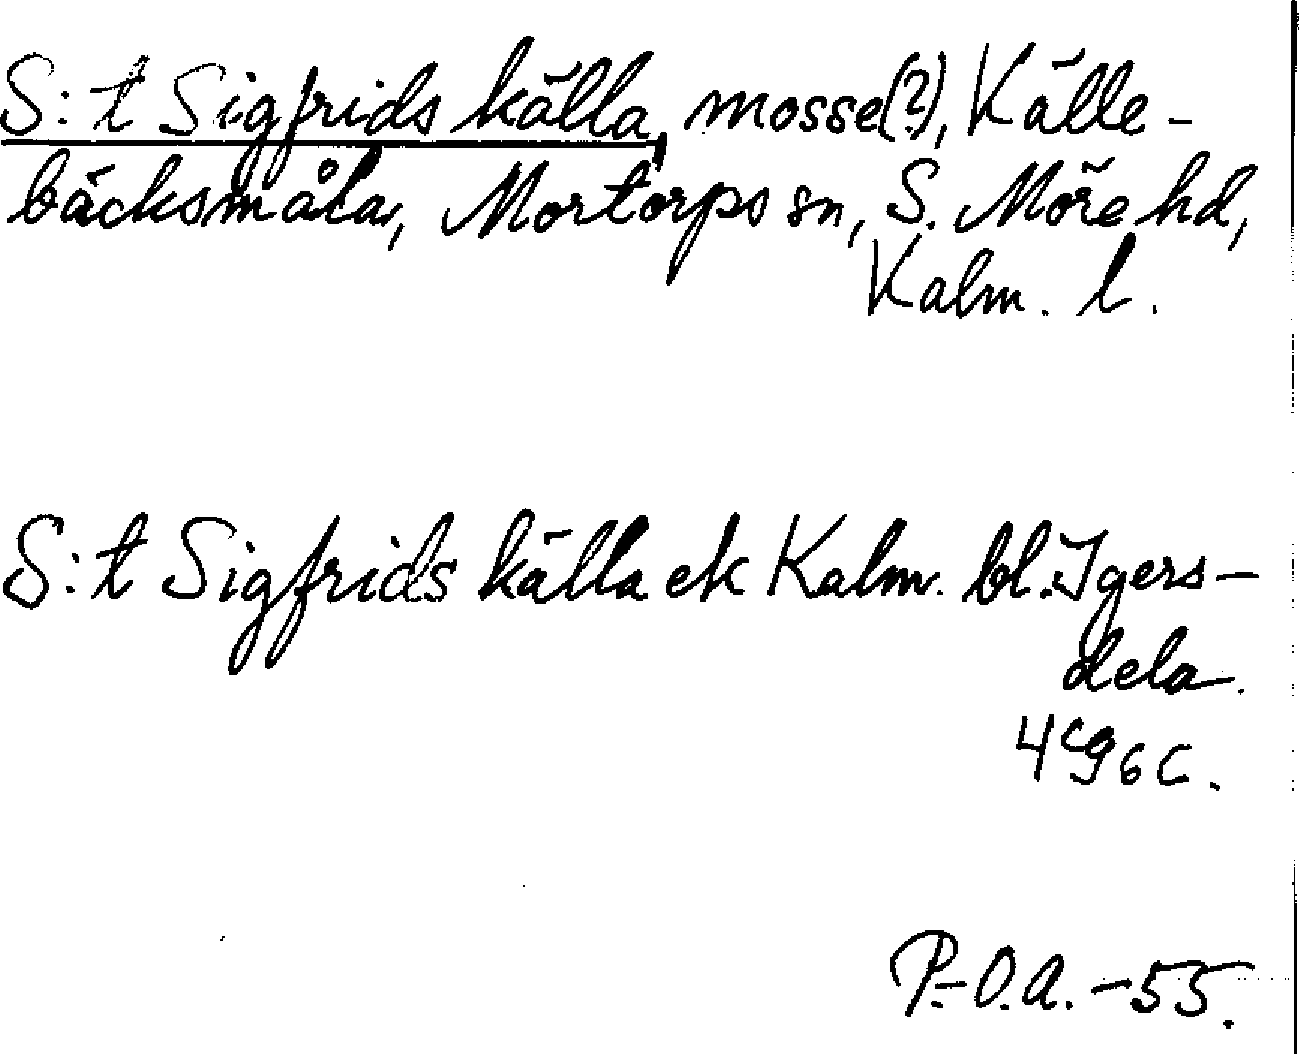 S:t Sigfrids källa, mosse(?), Källe-
bäcksmåla, Mortorps sn, S. Möre hd,
Kalm. l.
S:t Sigfrids källa ek Kalm. bl. Igers-
dela.
4g6c.
P.-O.A. -55.